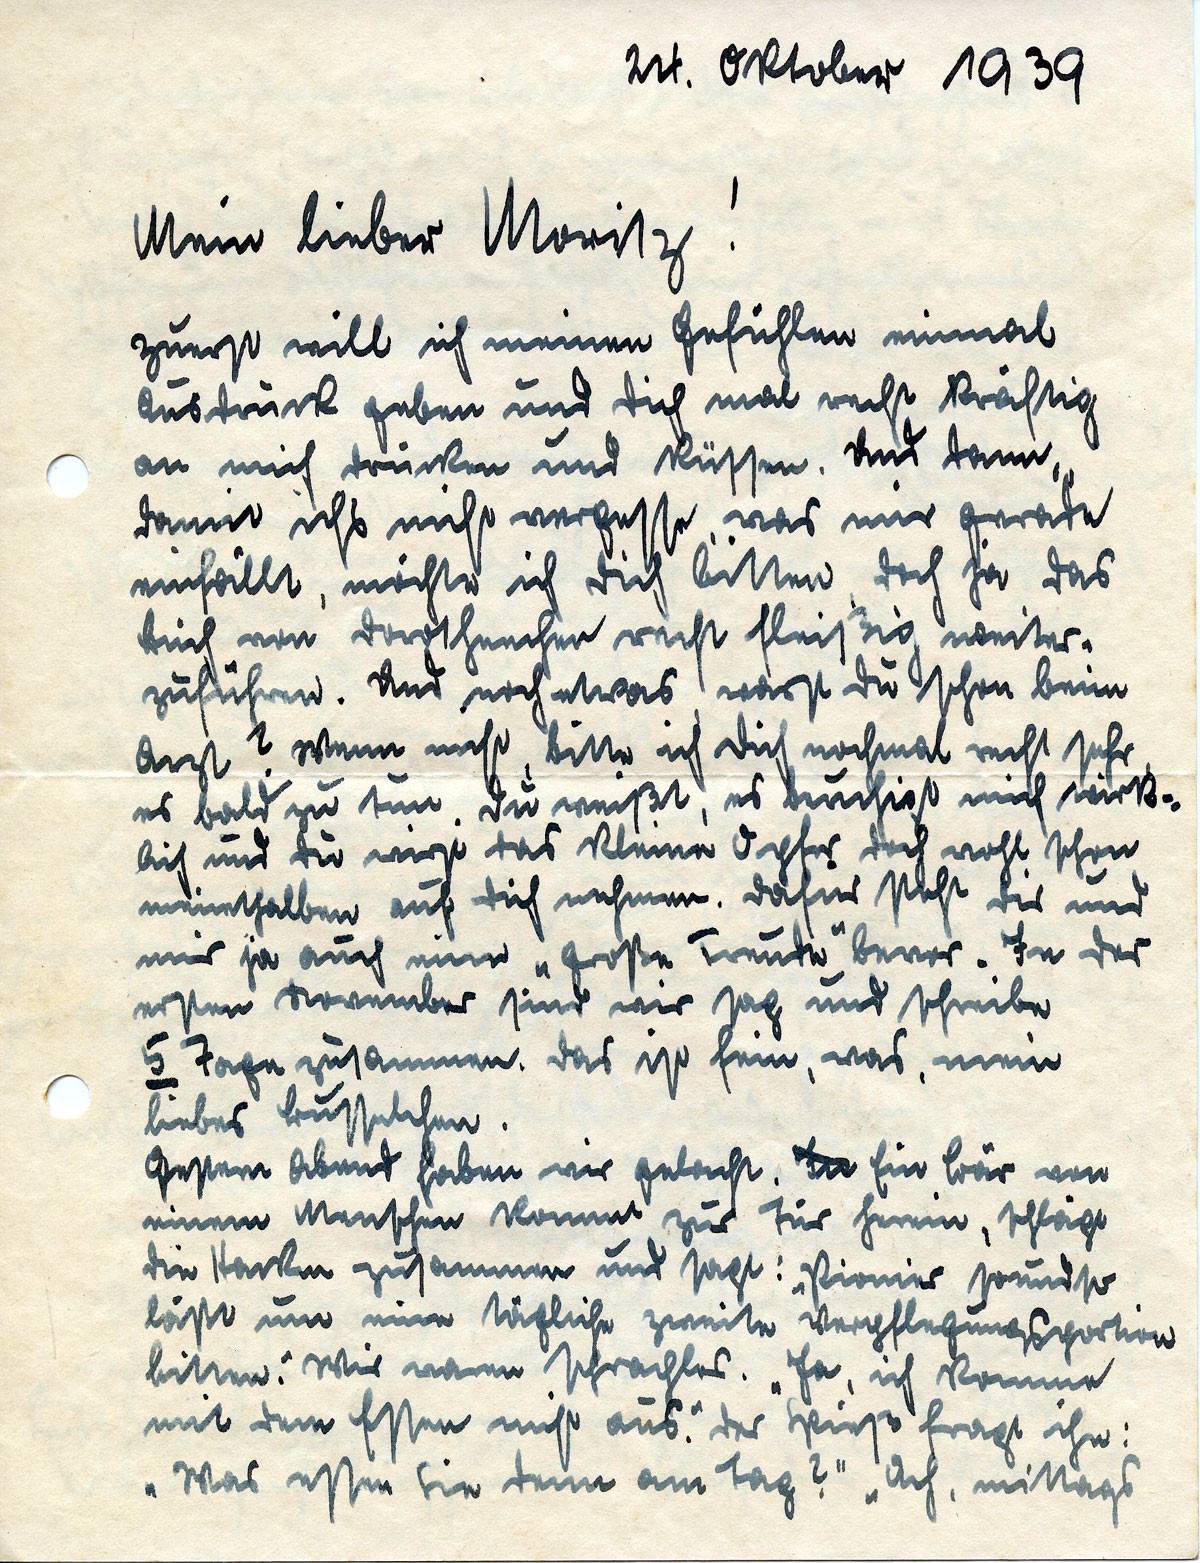 24. Oktober 1939
Mein lieber Moritz!
zuerst will ich meinen Gefühlen einmal
Ausdruck geben und dich mal recht kräftig
an mich drücken und küssen. Und dann,
damit ichs nicht vergesse, was mir gerade
einfällt, möchte ich dich bitten, doch ja das
Buch von Dorotheechen recht fleißig weiter-
zuführen. Und noch etwas, warst du schon beim
Arzt? Wenn nicht, bitte ich dich nochmal recht sehr,
es bald zu tun. Du weißt, es beruhigt mich wirk-
lich und du wirst das kleine Opfer doch wohl schon
meinethalben auf dich nehmen. Dafür steht dir und
mir ja auch eine „große Freude" bevor. In der
ersten November sind wir sag und schreibe
5 Tage zusammen. Das ist fein, was, mein
liebes Busselchen.
Gestern Abend haben wir gelacht. In Ein Bär von
einem Menschen kommt zur Tür herein, schlägt
die Hacken zusammen und sagt: „Pionier soundso
läßt um eine tägliche zweite Verpflegungsportion
bitten." Wir waren sprachlos. „Ja, ich komme
mit dem Essen nicht aus." Der Spieß fragt ihn:
„Was essen Sie denn am Tag?" „Ach, mittags